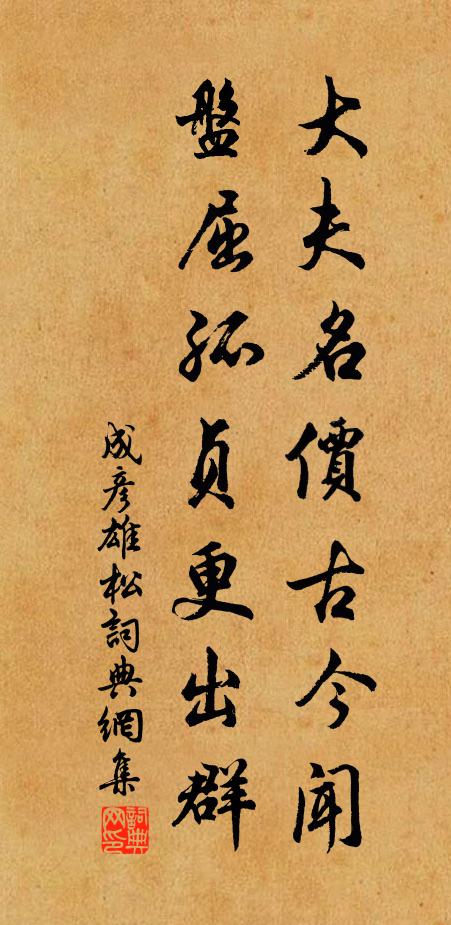 大夫名價古今聞
盤屈孤貞更出群
成彥雄松詞典網集
詞典網印